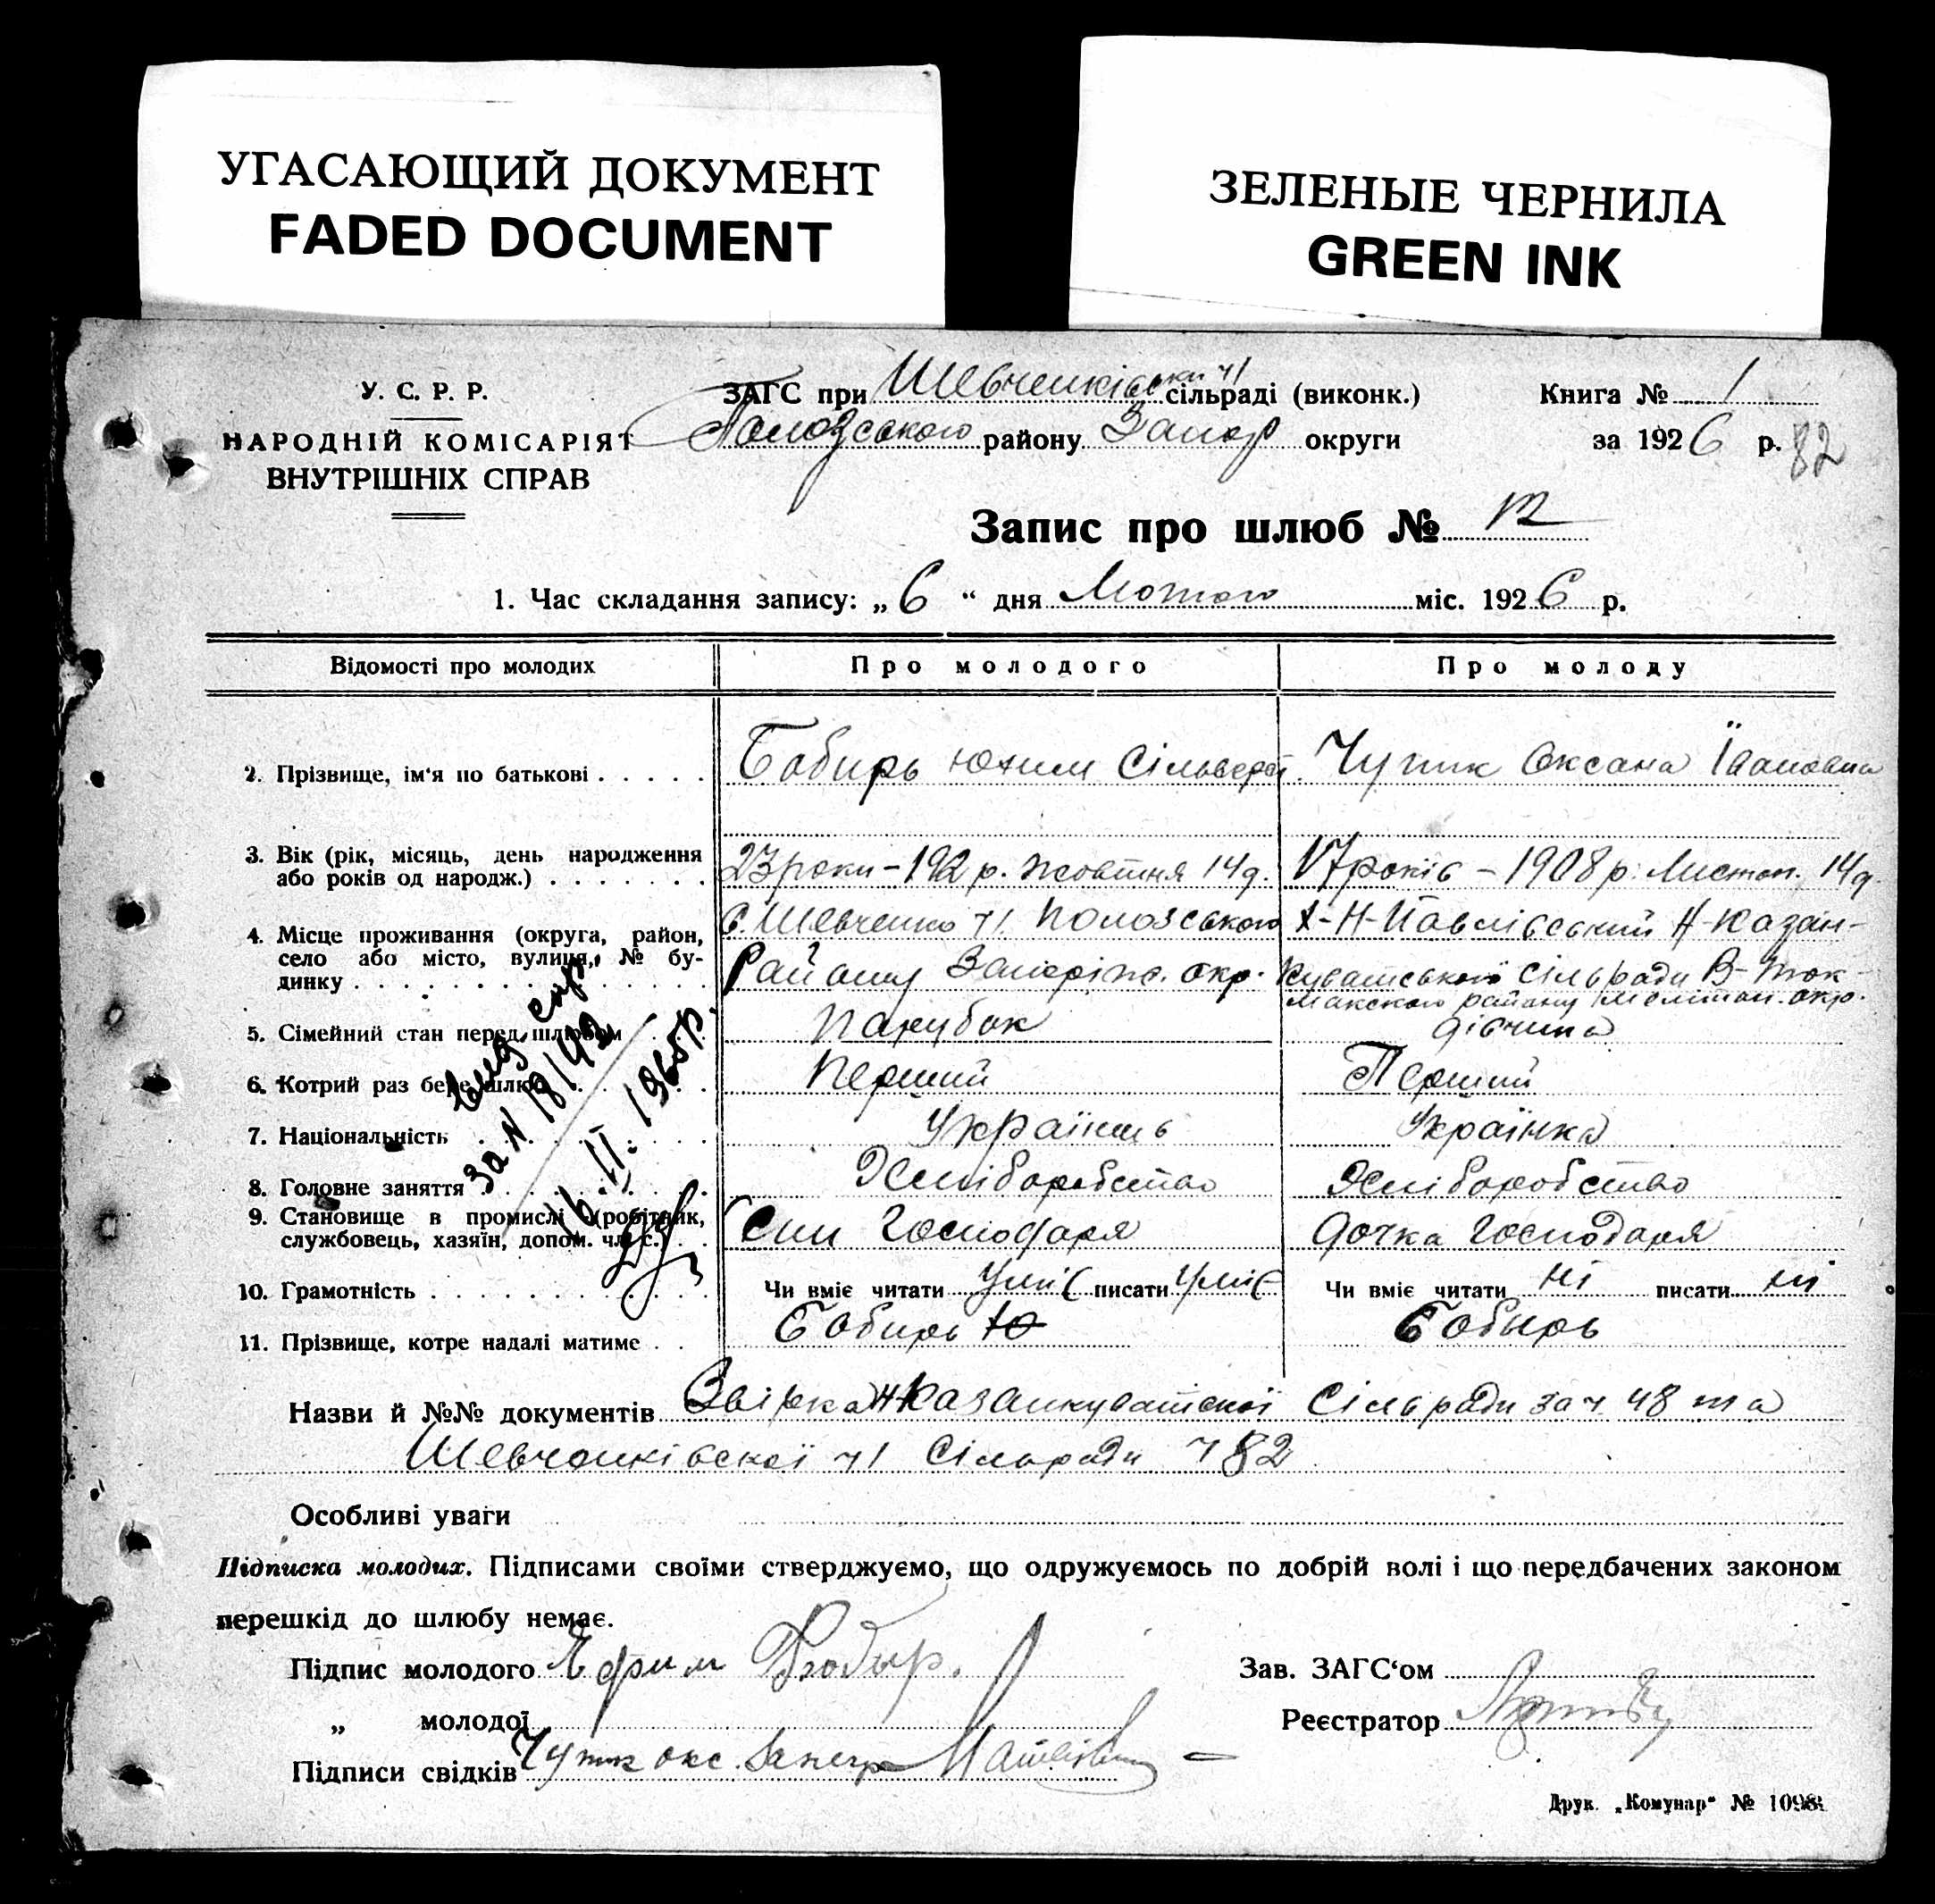 УГАСАЮЩИЙ ДОКУМЕНТ
FADED DOCUMENT
ЗЕЛЕНЫЕ ЧЕРНИЛА
GREEN INK
У. С. Р. Р.
НАРОДНІЙ КОМІСАРІЯТ
ВНУТРІШНІХ СПРАВ
ЗАГС при Шевченківськ ч1 сільраді (виконк.)
Пологзського району Запор округи
Книга № 1
за 1926 р.
82
Запис про шлюб № 12
1. Час складання запису: „ 6 “ дня Лютого міс. 1926 р.
Відомості про молодих Про молодого Про молоду
2. Прізвище, ім'я по батькові Бобирь Юхим Сільверст. Чутик Оксана Івановна
3. Вік (рік, місяць, день народження
або років од народж.) 23 роки - 192 р. жовтня 14 д. 17 років - 1908 р. Листоп. 14 д.
4. Місце проживання (округа, район,
село або місто, вулиця, № будинку
С. Шевченко ч1. Пологзського
Району Запоріж. окр.
Х-Н-Павлівський Н-Казан-
куватської Сільради В-Ток-
макского району Мелітоп. окр.
5. Сімейний стан перед шлюбом Парубок дівчина
6. Котрий раз бере шлюб Перший Перший
7. Національність Українець Українка
8. Головне заняття Хліборобство Хліборобство
9. Становище в промислі (робітник,
службовець, хазяїн, допом. чл. с.) Син Господаря дочка Господаря
10. Грамотність Чи вміє читати Уміє писати Уміє Чи вміє читати ні писати ні
11. Прізвище, котре надалі матиме Бобирь Ю Бобырь
за N 18/92
16.II.1965р.
Назви й №№ документів Звірка Н Казанкуватської Сільради за ч. 48 та
Шевченківскої ч1 Сільради ч 82
Особливі уваги
Підписка молодих. Підписами своїми стверджуємо, що одружуємось по добрій волі і що передбачених законом
перешкід до шлюбу немає.
Підпис молодого Ефим Бобыр. Зав. ЗАГС'ом
„ молодої Реєстратор
Підписи свідків Чутик окс.
Друк. „Комунар“ № 1098